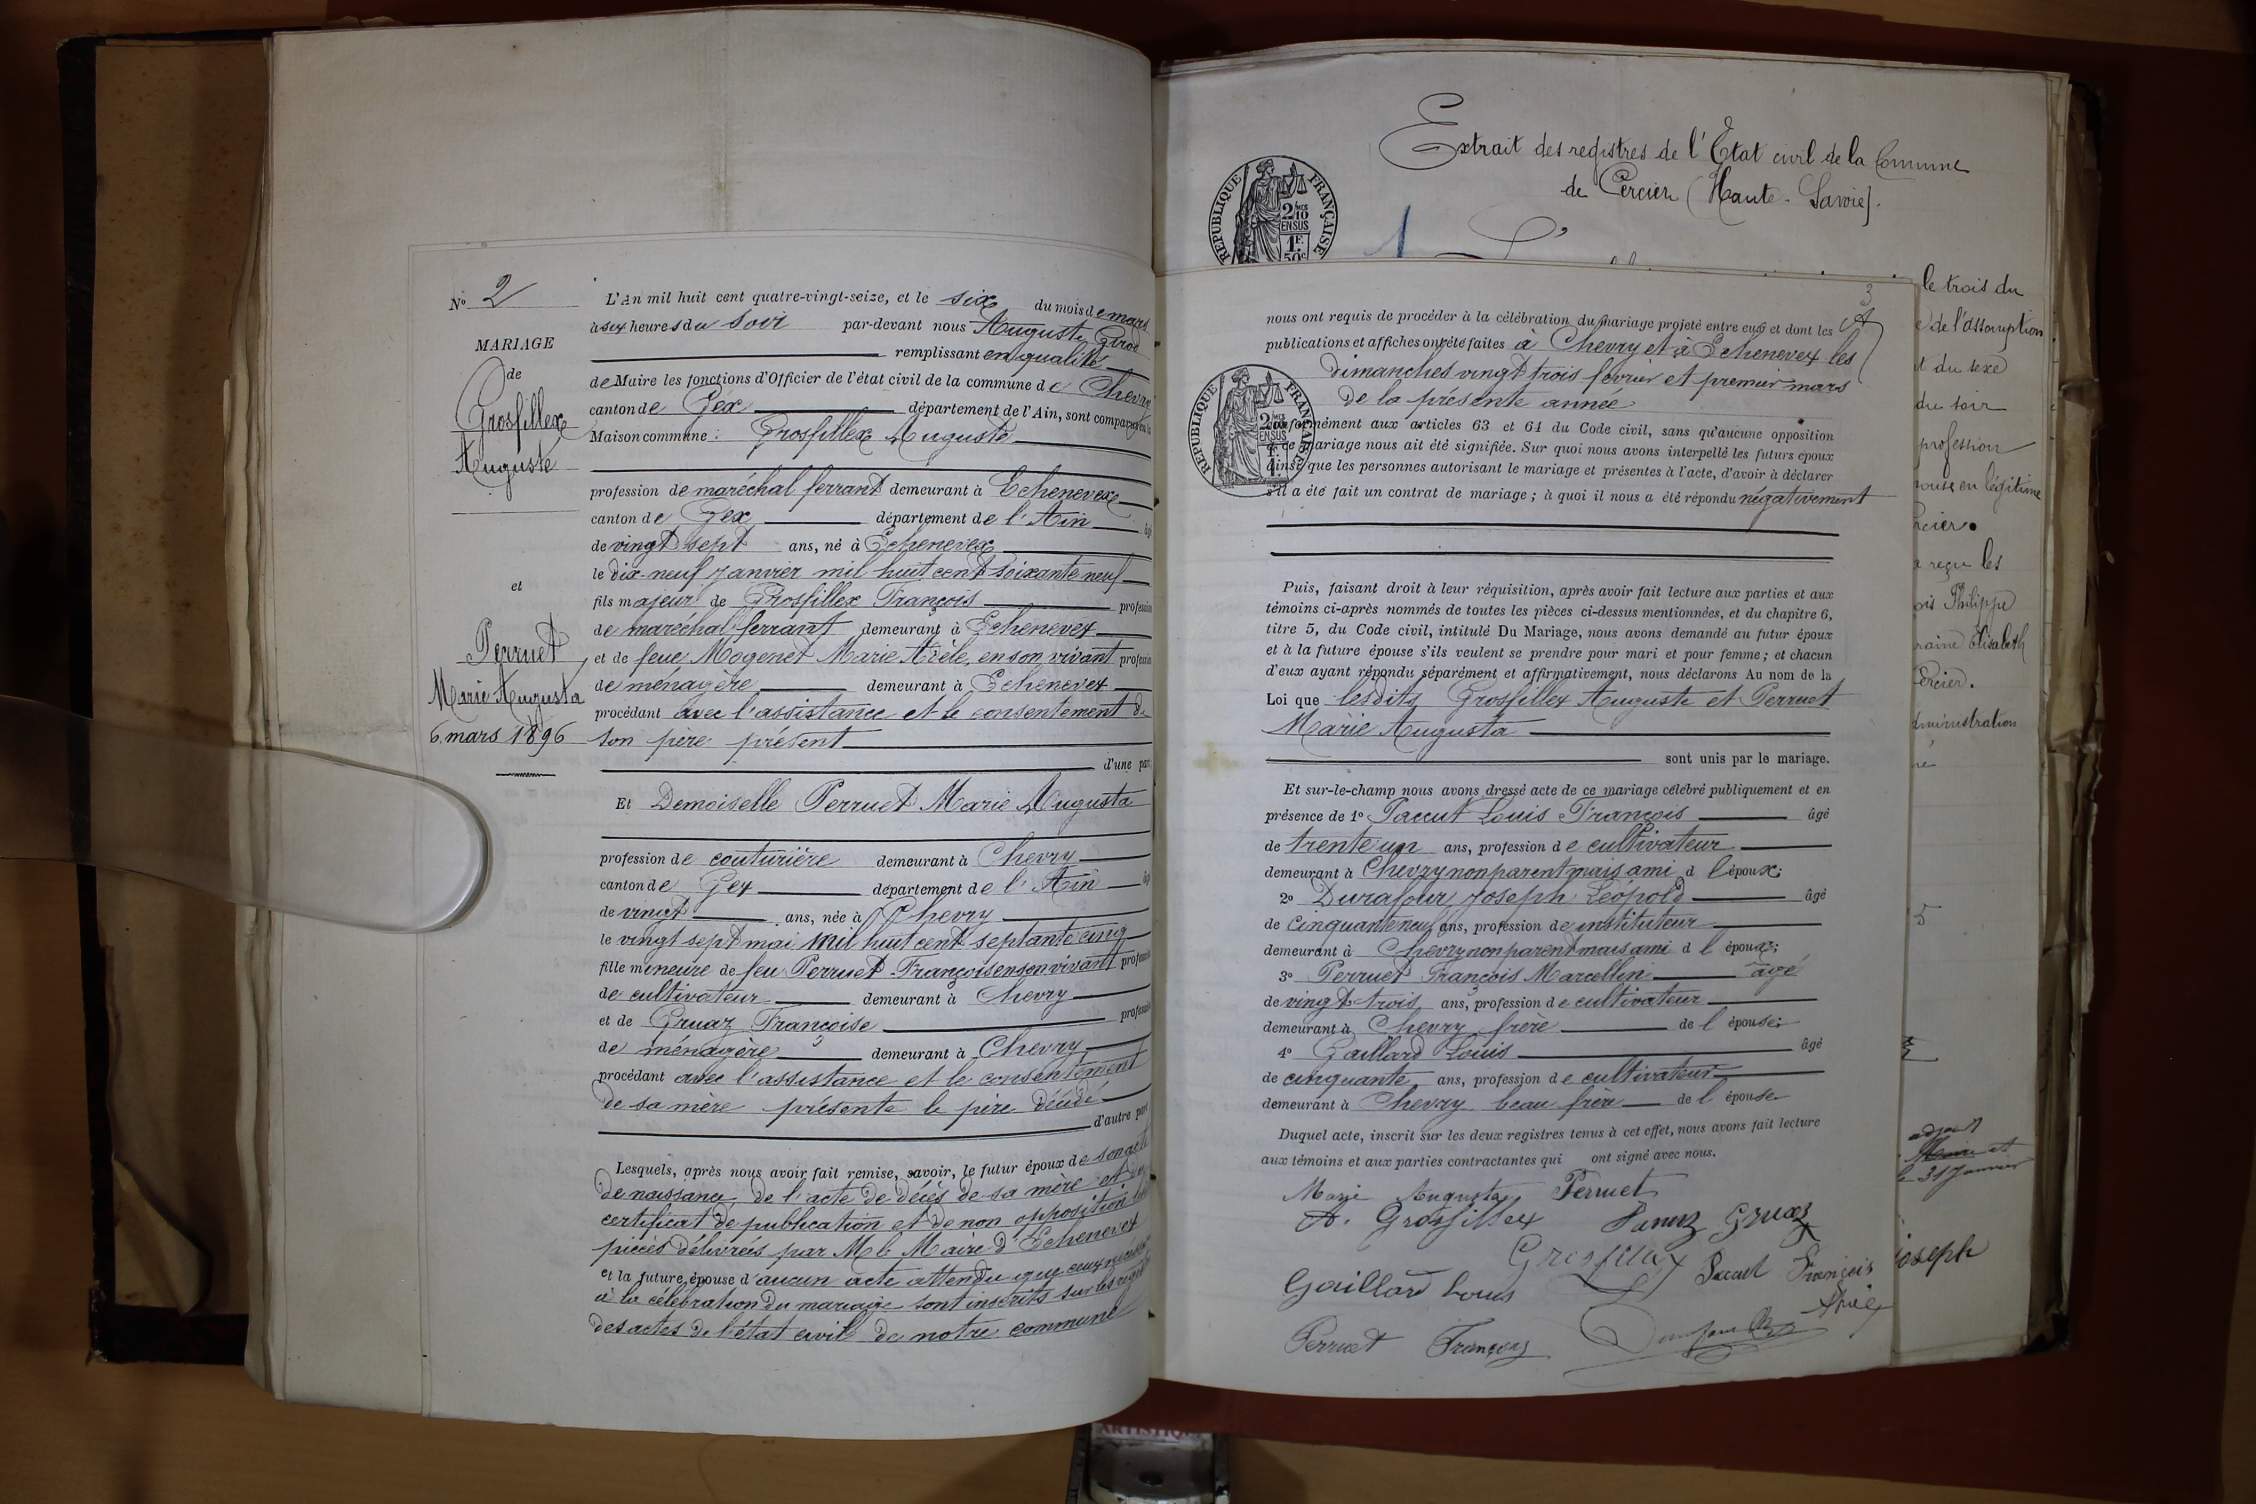 Nº 2
MARIAGE
de
Grosfillex
Auguste
et
Perruet
Marie Augusta
6 mars 1896
L'An mil huit cent quatre-vingt-seize, et le six du mois de mars
à six heures du soir par-devant nous Auguste Girod
remplissant en qualité
de Maire les fonctions d'Officier de l'état civil de la commune de Chevry
canton de Gex département de l'Ain, sont comparus en la
Maison commune : Grosfillex Auguste
profession de maréchal ferrant demeurant à Echenevex
canton de Gex département de l'Ain âgé
de vingt sept ans, né à Echenevex
le dix-neuf Janvier mil huit cent soixante neuf
fils majeur de Grosfillex François profession
de maréchal ferrant demeurant à Echenevex
et de feue Mogenet Marie Adèle, en son vivant profession
de ménagère demeurant à Echenevex
procédant avec l'assistance et le consentement de
son père présent
d'une part
Et Demoiselle Perruet Marie Augusta
profession de couturière demeurant à Chevry
canton de Gex département de l'Ain âgé
de vingt ans, née à Chevry
le vingt sept mai mil huit cent septante cinq
fille mineure de feu Perruet François en son vivant profession
de cultivateur demeurant à Chevry
et de Gruaz Françoise profession
de ménagère demeurant à Chevry
procédant avec l'assistance et le consentement
de sa mère présente le père décédé
d'autre part
Lesquels, après nous avoir fait remise, savoir, le futur époux de son acte
de naissance, de l'acte de décès de sa mère et
certificat de publication et de non opposition
pièces délivrées par M le Maire d'Echenevex
et la future épouse d'aucun acte attendu que ceux
à la célébration du mariage sont inscrits sur les
des actes de l'état civil de notre commune
Extrait des registres de l'Etat civil de la Commune
de Cercier (Haute-Savoie).
1
RÉPUBLIQUE FRANÇAISE
2/10
EN SUS
1F
50c
3
nous ont requis de procéder à la célébration du mariage projeté entre eux et dont les
publications et affiches ont été faites à Chevry et à Echenevex les
dimanches vingt trois février et premier mars
de la présente année
RÉPUBLIQUE FRANÇAISE
conformément aux articles 63 et 64 du Code civil, sans qu'aucune opposition
à ce mariage nous ait été signifiée. Sur quoi nous avons interpellé les futurs époux
ainsi que les personnes autorisant le mariage et présentes à l'acte, d'avoir à déclarer
s'il a été fait un contrat de mariage ; à quoi il nous a été répondu négativement
Puis, faisant droit à leur réquisition, après avoir fait lecture aux parties et aux
témoins ci-après nommés de toutes les pièces ci-dessus mentionnées, et du chapitre 6,
titre 5, du Code civil, intitulé Du Mariage, nous avons demandé au futur époux
et à la future épouse s'ils veulent se prendre pour mari et pour femme ; et chacun
d'eux ayant répondu séparément et affirmativement, nous déclarons Au nom de la
Loi que lesdits Grosfillex Auguste et Perruet
Marie Augusta
sont unis par le mariage.
Et sur-le-champ nous avons dressé acte de ce mariage célébré publiquement et en
présence de 1º Paccut Louis François âgé
de trente un ans, profession de cultivateur
demeurant à Chevry non parent mais ami d l'époux;
2º Durafour Joseph Léopold âgé
de cinquante neuf ans, profession de instituteur
demeurant à Chevry non parent mais ami d l'époux;
3º Perruet François Marcellin âgé
de vingt-trois ans, profession de cultivateur
demeurant à Chevry frère de l'épouse;
4º Gaillard Louis âgé
de cinquante ans, profession de cultivateur
demeurant à Chevry beau frère de l'épouse
Duquel acte, inscrit sur les deux registres tenus à cet effet, nous avons fait lecture
aux témoins et aux parties contractantes qui ont signé avec nous.
Marie Augusta Perruet
A. Grosfillex Gruaz
Grosfillex Paccut François
Gaillard Louis
Perruet François
le trois du
de l'assomption
du sexe
du soir
profession
en légitime
a reçu les
Philippe
Elisabeth
Cercier.
administration
5
le 31 Janvier
Joseph